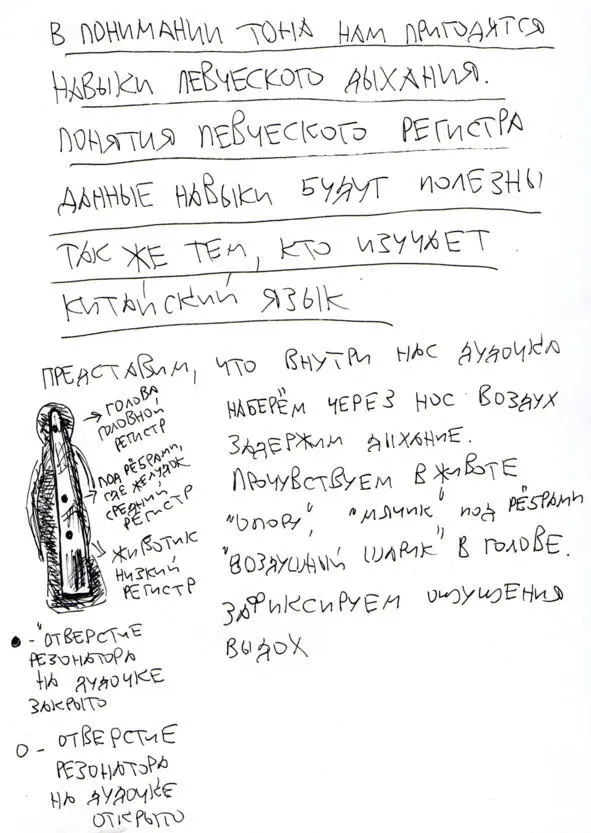 В ПОНИМАНИИ ТОНА НАМ ПРИГОДЯТСЯ
НАВЫКИ ПЕВЧЕСКОГО ДЫХАНИЯ.
ПОНЯТИЯ ПЕВЧЕСКОГО РЕГИСТРА
ДАННЫЕ НАВЫКИ БУДУТ ПОЛЕЗНЫ
ТАК ЖЕ ТЕМ, КТО ИЗУЧАЕТ
КИТАЙСКИЙ ЯЗЫК
ПРЕДСТАВИМ, ЧТО ВНУТРИ НАС ДУДОЧКА
ГОЛОВА,
ГОЛОВНОЙ
РЕГИСТР
ПОД РЁБРАМИ,
ГДЕ ЖЕЛУДОК
СРЕДНИЙ
РЕГИСТР
ЖИВОТИК,
НИЗКИЙ
РЕГИСТР
НАБЕРЁМ ЧЕРЕЗ НОС ВОЗДУХ
ЗАДЕРЖИМ ДЫХАНИЕ.
ПОЧУВСТВУЕМ В ЖИВОТЕ
"ОПОРУ", "МЯЧИК" ПОД РЁБРАМИ
"ВОЗДУШНЫЙ ШАРИК" В ГОЛОВЕ.
ЗАФИКСИРУЕМ ОЩУЩЕНИЯ
ВЫДОХ
● - "ОТВЕРСТИЕ
РЕЗОНАТОРА
НА ДУДОЧКЕ
ЗАКРЫТО
○ - ОТВЕРСТИЕ
РЕЗОНАТОРА
НА ДУДОЧКЕ
ОТКРЫТО